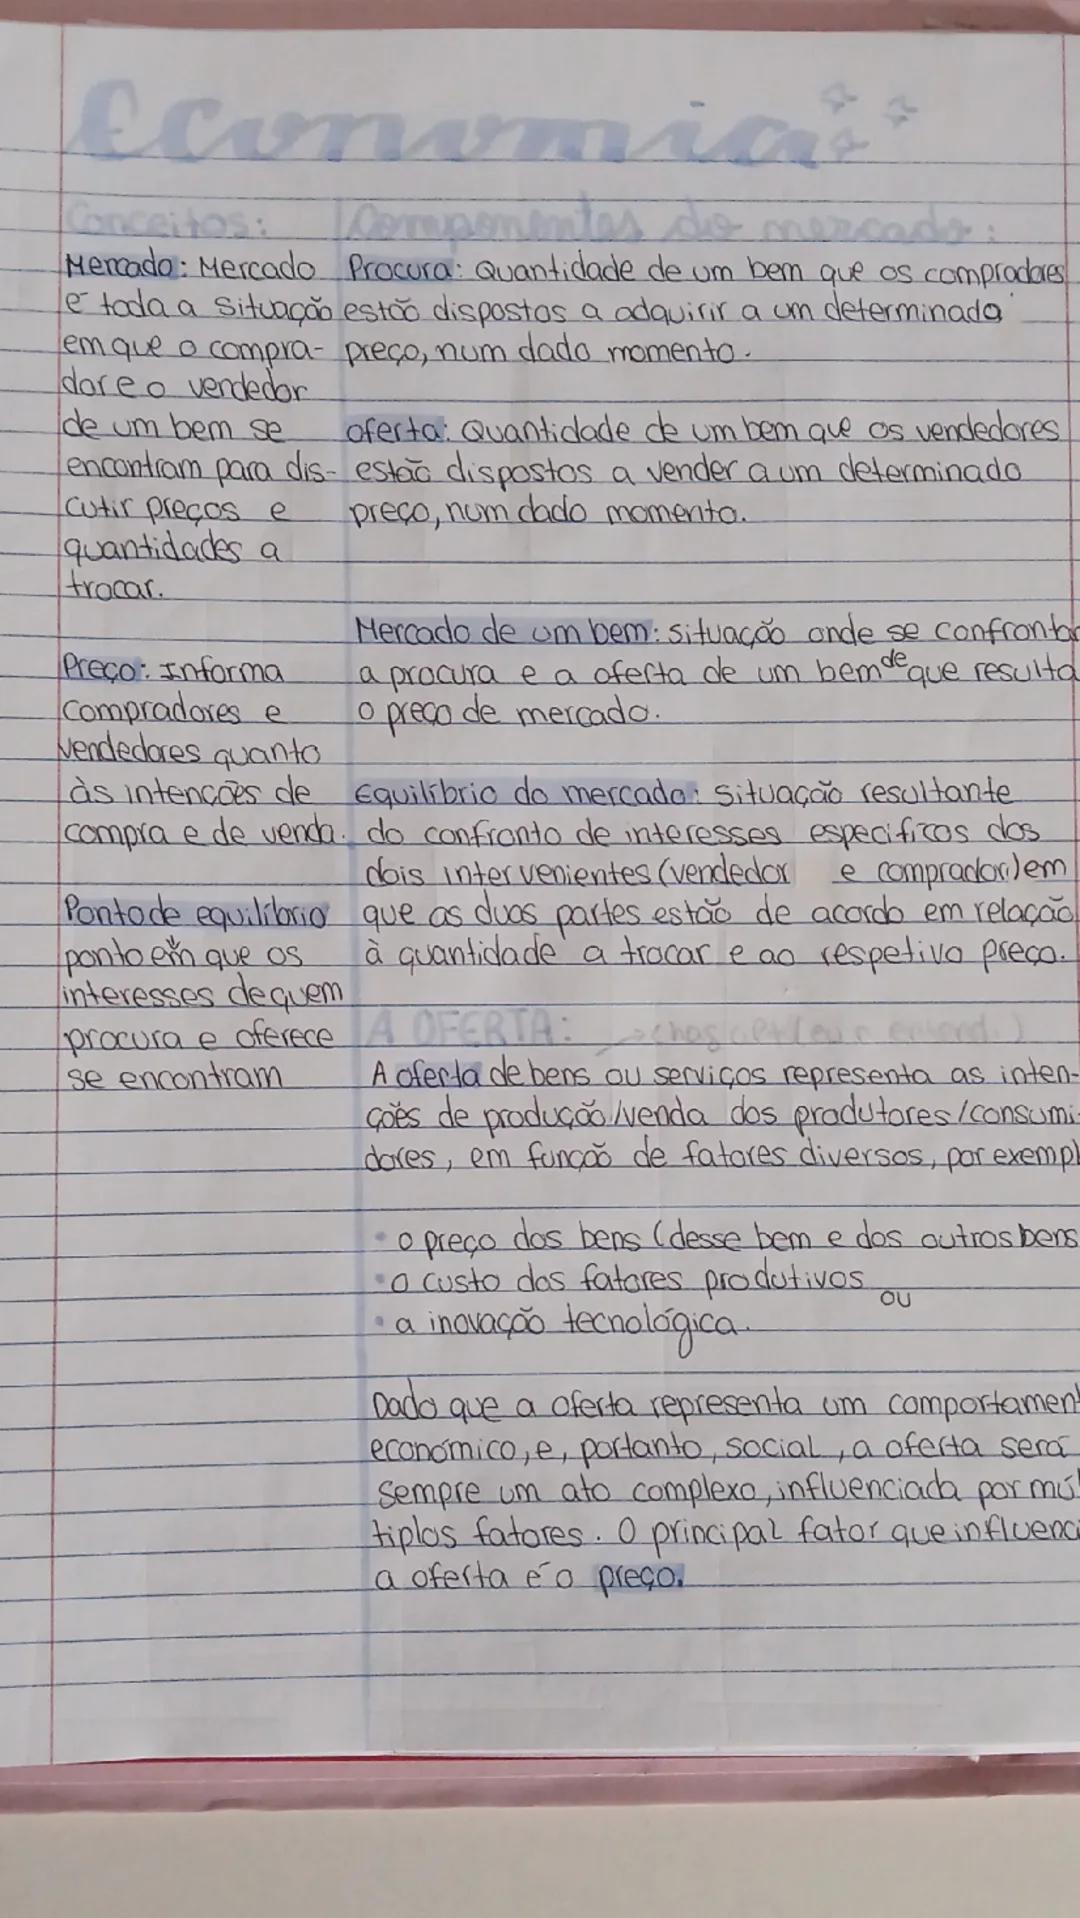 Economia
Conceitos:
Mercado: Mercado
é toda a situação
em que o compra-
dor e o vendedor
de um bem se
encontram para dis-
cutir preços e
quantidades a
trocar.
Preço: Informa
compradores e
vendedores quanto
às intenções de
compra e de venda.
Ponto de equilíbrio
ponto em que os
interesses de quem
procura e oferece
se encontram
Componentes do mercado:
Procura: Quantidade de um bem que os compradores
estão dispostos a adquirir a um determinado
preço, num dado momento.
oferta: Quantidade de um bem que os vendedores
estão dispostos a vender a um determinado
preço, num dado momento.
Mercado de um bem: situação onde se confrontam
a procura e a oferta de um bem de que resulta
o preço de mercado.
Equilíbrio do mercado: situação resultante
do confronto de interesses especificos dos
dois intervenientes (vendedor e comprador) em
que as duas partes estão de acordo em relação
à quantidade a trocar e ao respetivo preço.
A OFERTA:
A oferta de bens ou serviços representa as inten-
ções de produção/venda dos produtores/consumi-
dores, em função de fatores diversos, por exempl
• o preço dos bens (desse bem e dos outros bens
• o custo dos fatores produtivos ou
• a inovação tecnológica.
Dado que a oferta representa um comportament
económico, e, portanto, social, a oferta será
sempre um ato complexo, influenciada por múl
tiplos fatores. O principal fator que influenci
a oferta é o preço.